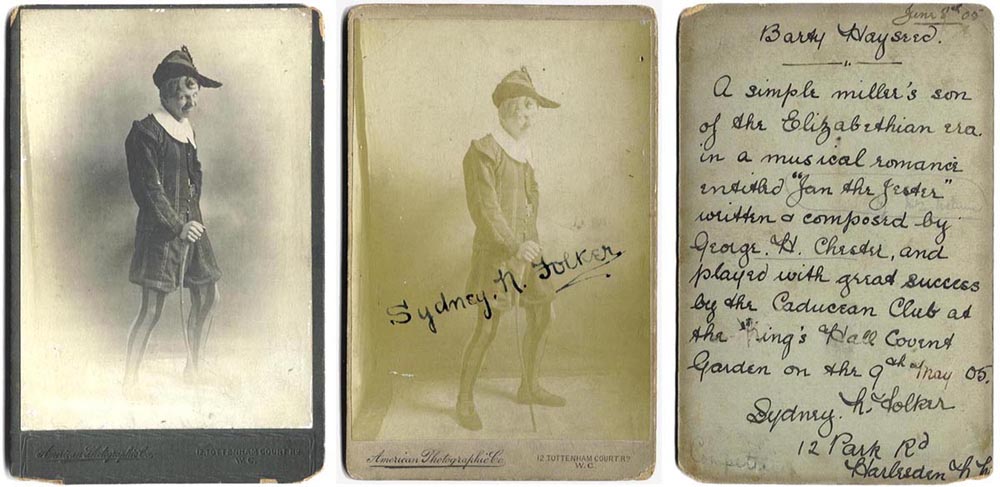 American Photographic Co.
12 TOTTENHAM COURT RD
W.C.
Sydney. N. Folker
American Photographic Co.
12 TOTTENHAM COURT RD
W.C.
June 8th 05
Barty Hayseed.
A simple miller's son
of the Elizabethian era.
in a musical romance
entitled "Jan the Jester"
written & composed by
George. H. Chester, and
played with great success
by the Caducean Club at
the King's Hall Covent
Garden on the 9th May 05.
Sydney. N. Folker
12 Park Rd
Harlesden N.W.